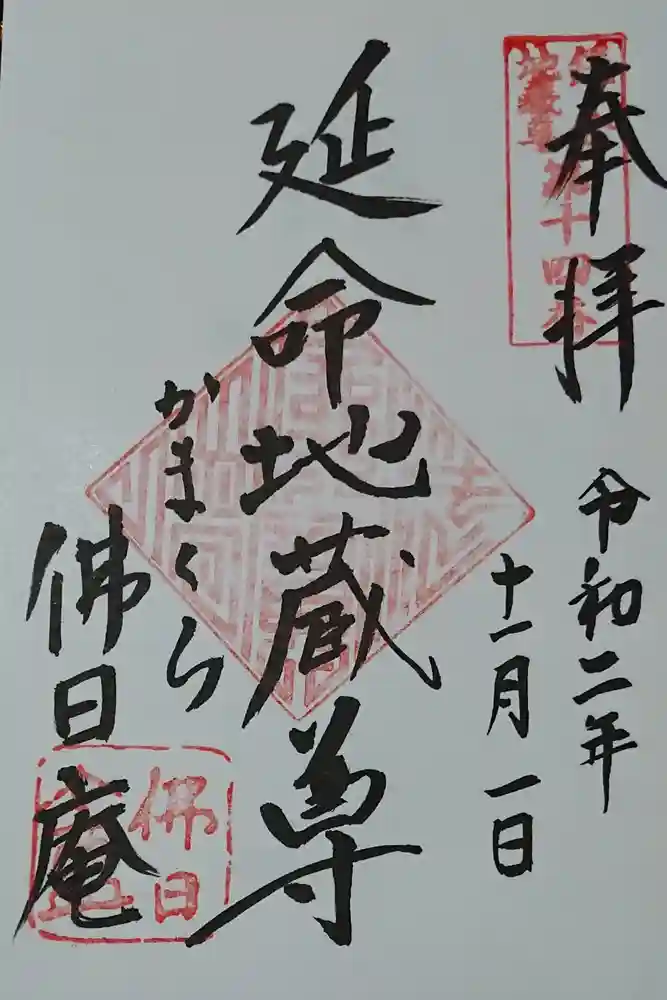 奉拝
地蔵尊
第十四番
令和二年
十一月一日
延命地蔵尊
かまくら
佛日庵
佛日